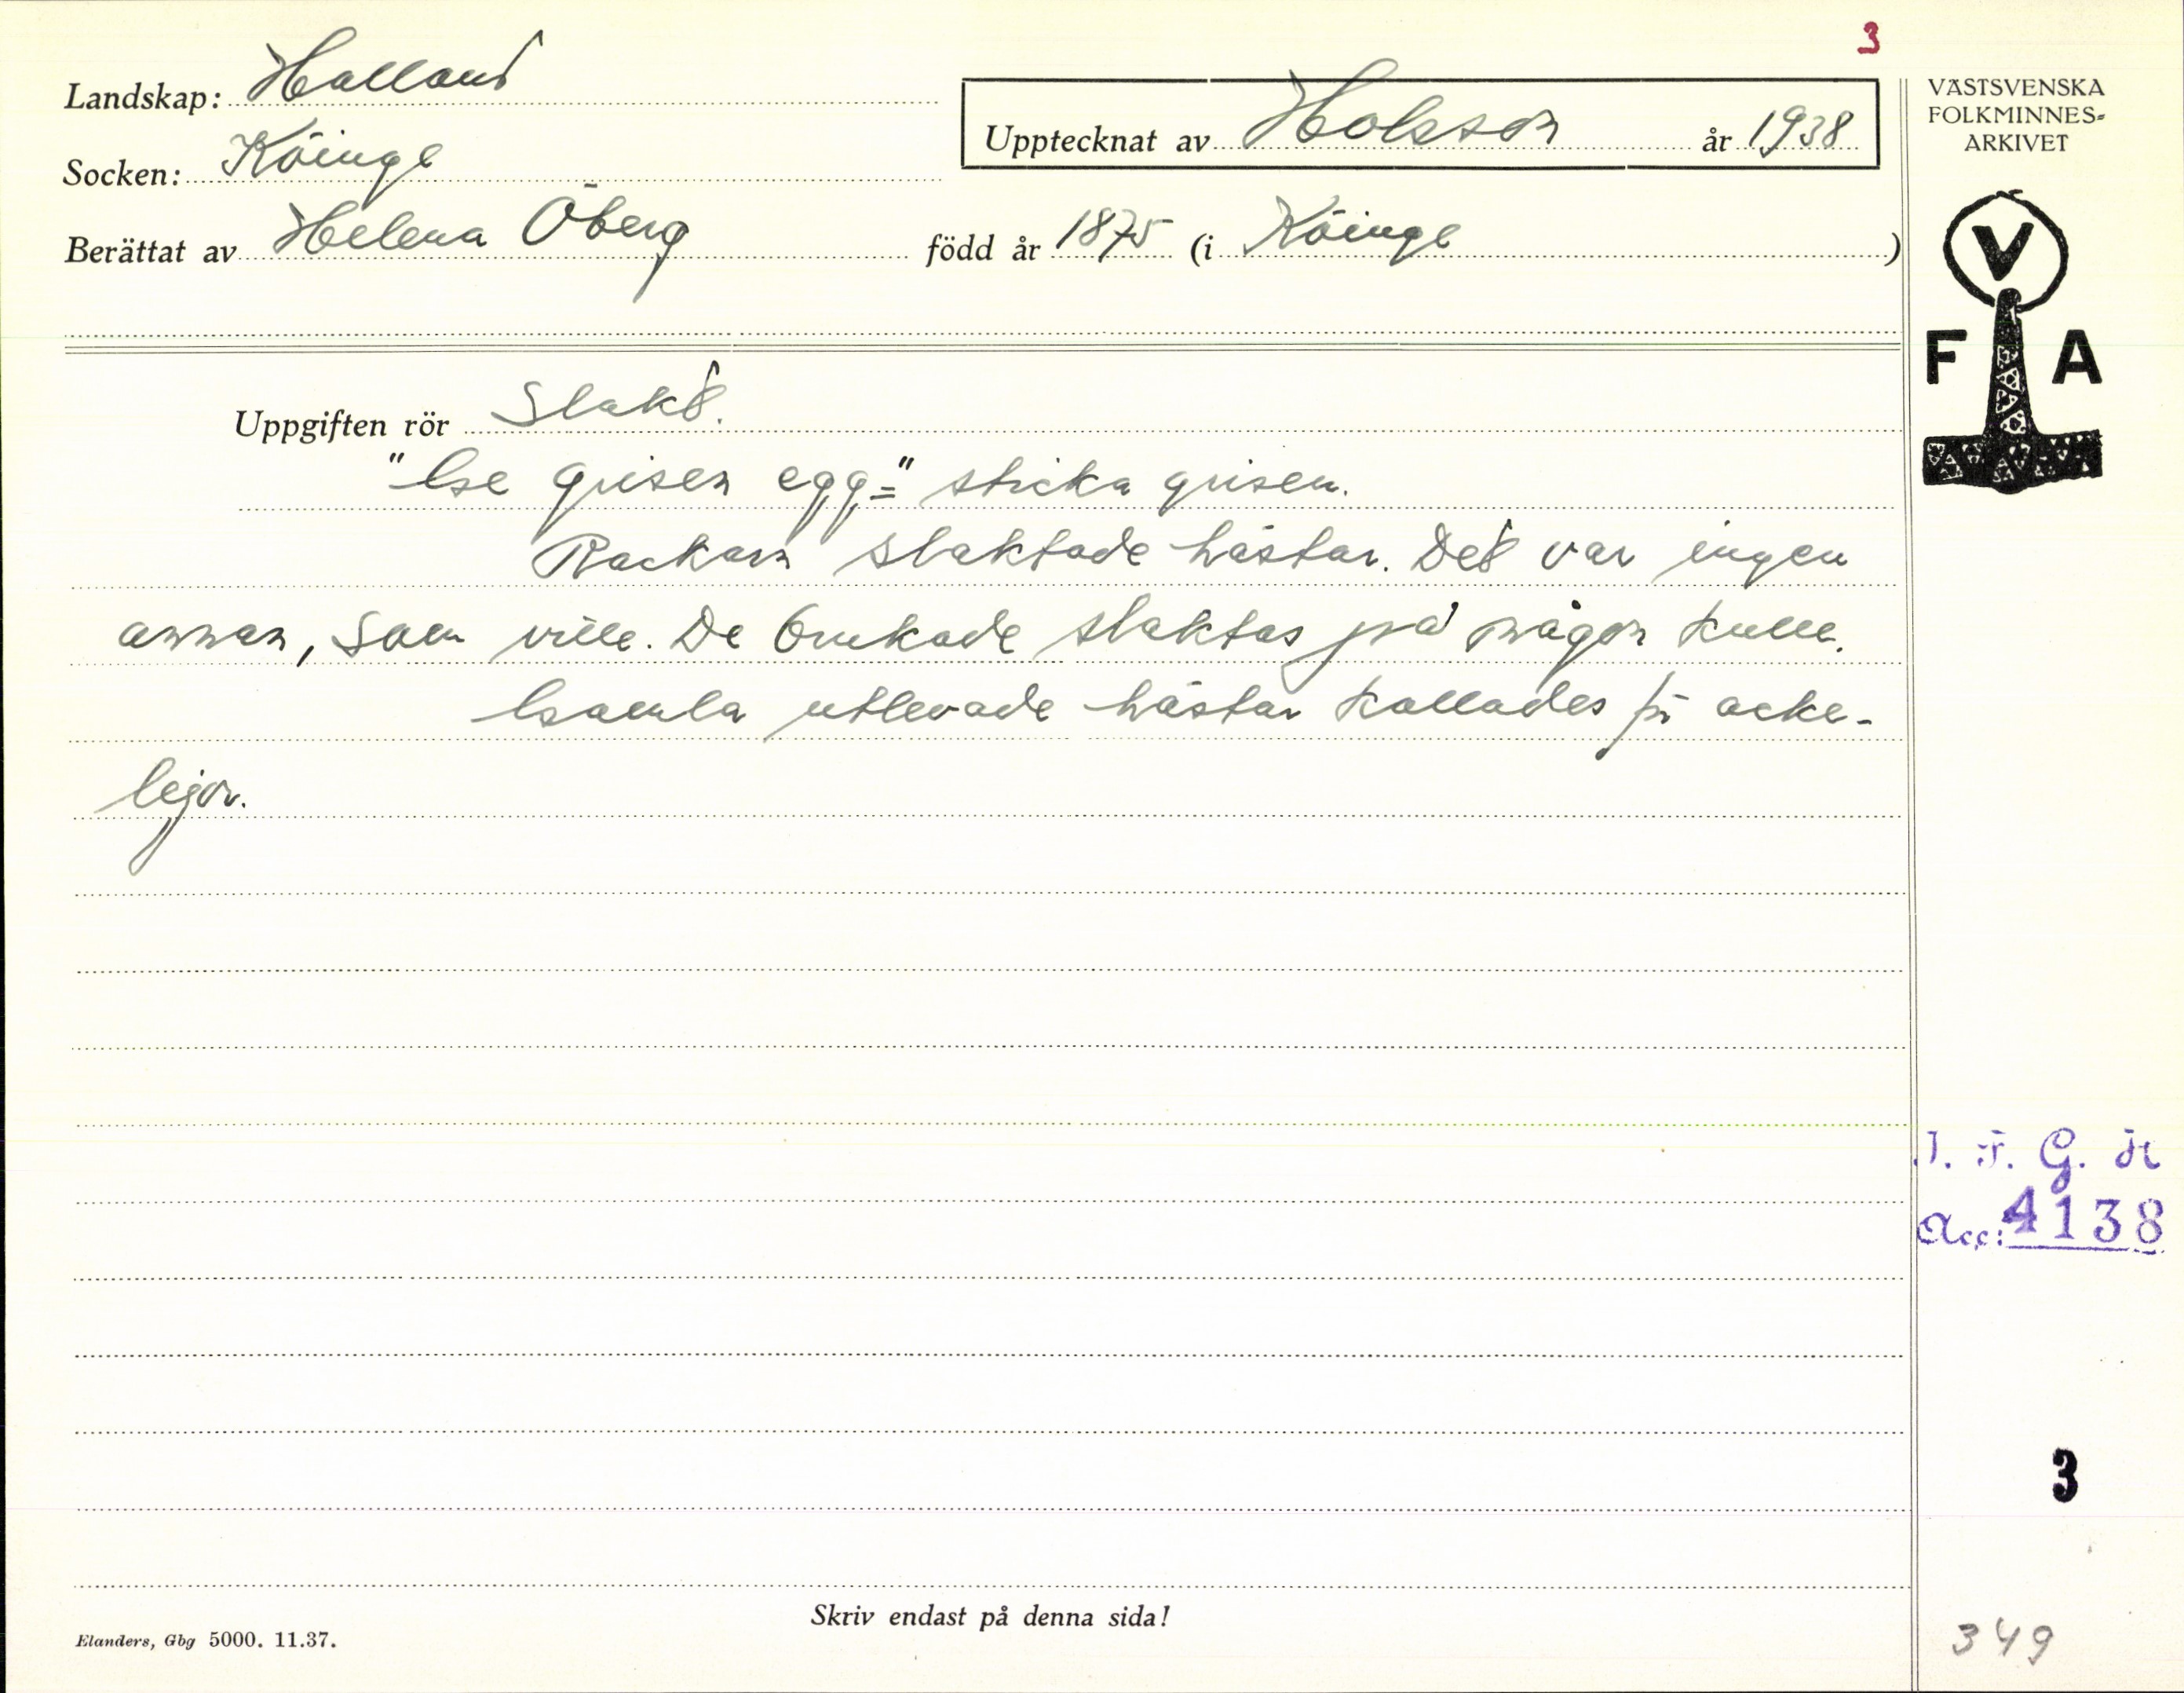 3
Landskap: Halland
Upptecknat av Holsson år 1938
VÄSTSVENSKA
FOLKMINNES=
ARKIVET
Socken: Köinge
Berättat av Helena Öberg född år 1875 (i Köinge)
V
F A
Uppgiften rör Slakt.
"Ge grisen egg=" sticka grisen.
Rackarn slaktade hästar. Det var ingen
annan, som ville. De brukade slaktas på någon kulle.
Gamla utlevade hästar kallades för acke-
lejor.
I. F. G. H
Acc: 4138
3
Skriv endast på denna sida!
Elanders, Gbg 5000. 11.37.
349